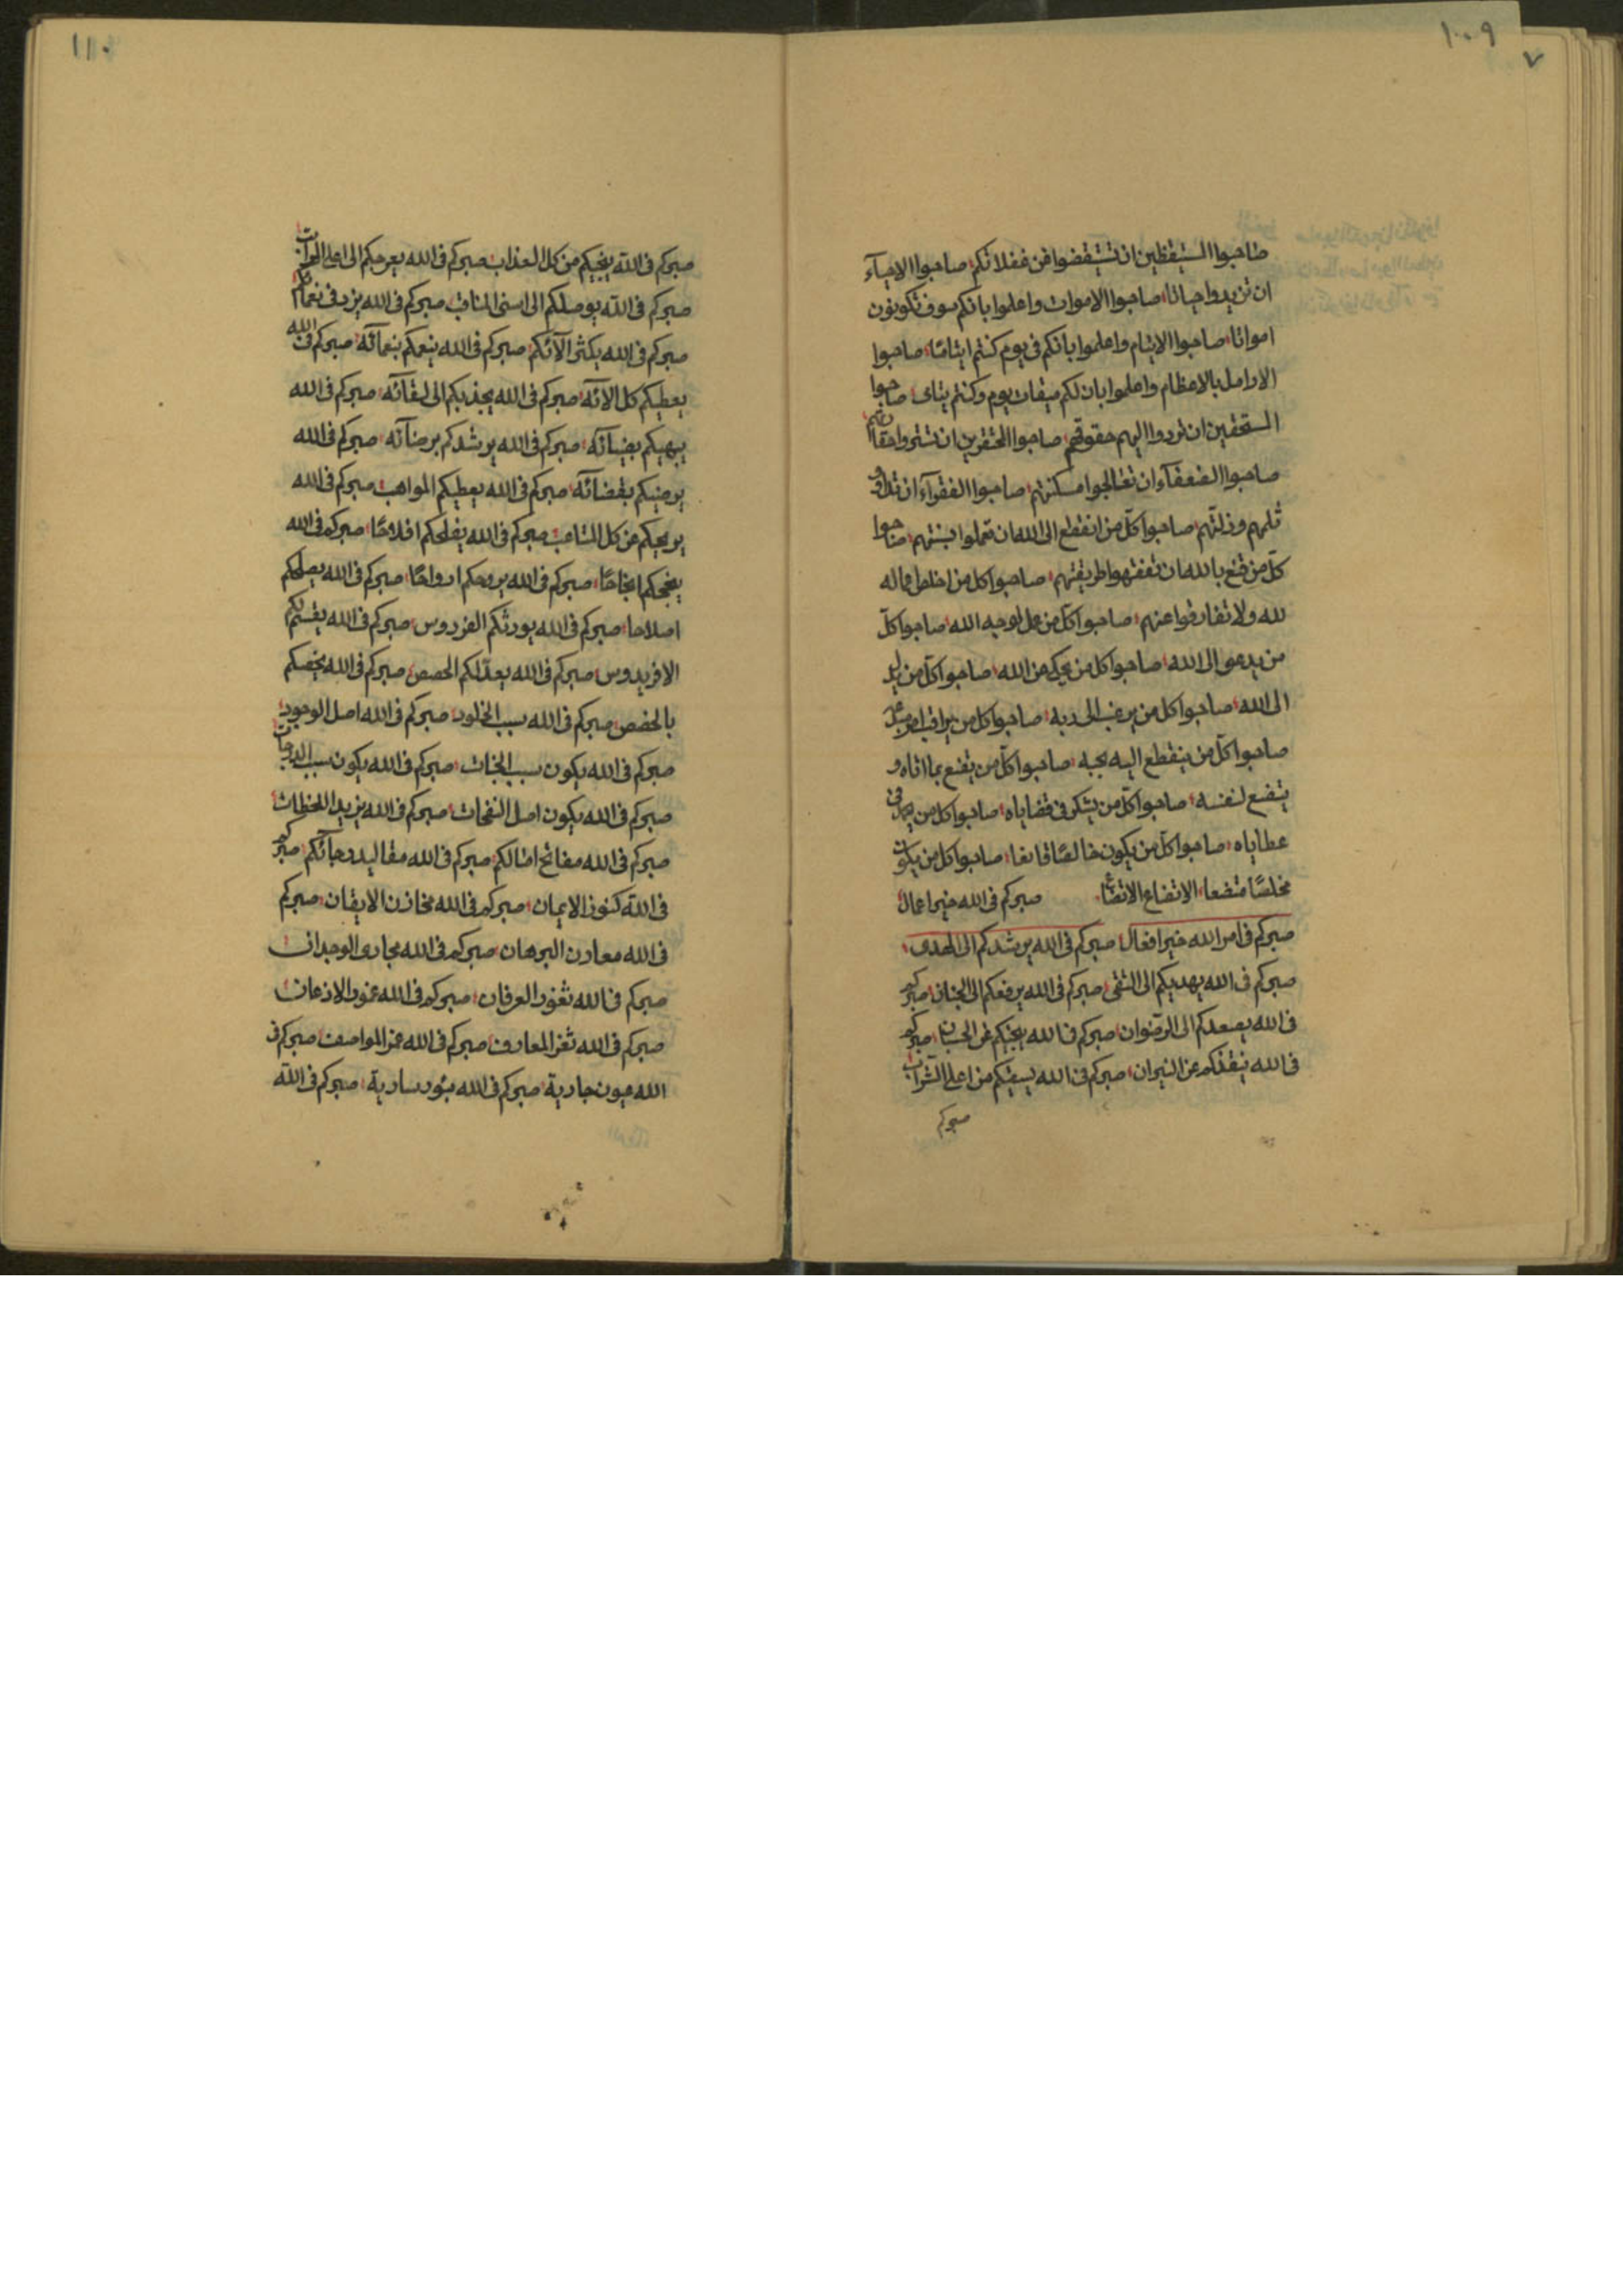 ١٠٩
٧
صاحبوا المستيقظين ان تستيقضوا من غفلاتكم صاحبوا الاحياء
ان تزيدوا حياتا صاحبوا الاموات واعلموا بانكم سوف تكونون
امواتا صاحبوا الايتام واعلموا بانكم فى يوم كنتم ايتامًا صاحبوا
الارامل بالاعظام واعلموا بان لكم ميقات يوم وكنتم يتامى صاحبوا
المستحقين ان تردوا اليهم حقوقهم صاحبوا المحتقرين ان تشتروا
صاحبوا الضعفآء ان تعالجوا مسكنتهم صاحبوا الفقرآء ان
ثلمهم وذلتهم صاحبوا كلّ من انقطع الى الله ان تعملوا بسنتهم صاحبوا
كلّ من قنع بالله ان تفقهوا طريقتهم صاحبوا كل من اخلط ماله
لله ولا تفارقوا عنهم صاحبوا كلّ من عمل لوجه الله صاحبوا كلّ
من يدعو الى الله صاحبوا كل من يحكى عن الله صاحبوا كلّ من يدل
الى الله صاحبوا كل من يرغب الى ربه صاحبوا كل من يراقب
صاحبوا كلّ من ينقطع اليه بحبه صاحبوا كلّ من يقنع بما اتاه و
ينفع لنفسه صاحبوا كلّ من يشكر فى قضاياه صاحبوا كل من فى
عطاياه صاحبوا كلّ من يكون خالصًا قانعا صاحبوا كل من يكون
مخلصًا متضعا الاتضاع الاتضاع صبركم فى الله خير اعمال
صبركم فى امر الله خير افعال صبركم فى الله يرشدكم الى الهدى
صبركم فى الله يهديكم الى التقى صبركم فى الله يرفعكم الى الجنان صبركم
فى الله يصعدكم الى الرضوان صبركم فى الله ينجيكم عن الحسبان صبركم
فى الله ينقذكم عن النيران صبركم فى الله يسقيكم من اعلى الشراب
صبركم
١١٠
صبركم فى الله ينجيكم من كل العذاب صبركم فى الله يعرجكم الى اعلى
صبركم فى الله يوصلكم الى اسنى المناقب صبركم فى الله يزد فى نعمائكم
صبركم فى الله يكثر آلائكم صبركم فى الله ينعمكم بنعمائه صبركم فى الله
يعطيكم كل آلائه صبركم فى الله يجذبكم الى لقائه صبركم فى الله
يبهيكم بضيائه صبركم فى الله يرشدكم برضائه صبركم فى الله
يرضيكم بقضائه صبركم فى الله يعطيكم المواهب صبركم فى الله
يريحكم من كل المتاعب صبركم فى الله يفلحكم افلاحًا صبركم فى الله
ينجحكم انجاحًا صبركم فى الله يروحكم ارواحًا صبركم فى الله يصلحكم
اصلاحا صبركم فى الله يورثكم الفردوس صبركم فى الله يقسم لكم
الافريدوس صبركم فى الله يعدّ لكم الحصص صبركم فى الله يخصكم
بالحصص صبركم فى الله سبب الخلود صبركم فى الله اصل الوجود
صبركم فى الله يكون سبب الجنات صبركم فى الله يكون سبب الدرجات
صبركم فى الله يكون اصل النفحات صبركم فى الله يزيد اللحظات
صبركم فى الله مفاتح امالكم صبركم فى الله مقاليد رجائكم صبركم
فى الله كنوز الايمان صبركم فى الله مخازن الايقان صبركم
فى الله معادن البرهان صبركم فى الله مجارى الوجدان
صبركم فى الله ثغور العرفان صبركم فى الله الاذعان
صبركم فى الله ثغر المعارف صبركم فى الله المواصف صبركم فى
الله عيون جارية صبركم فى الله سارية صبركم فى الله